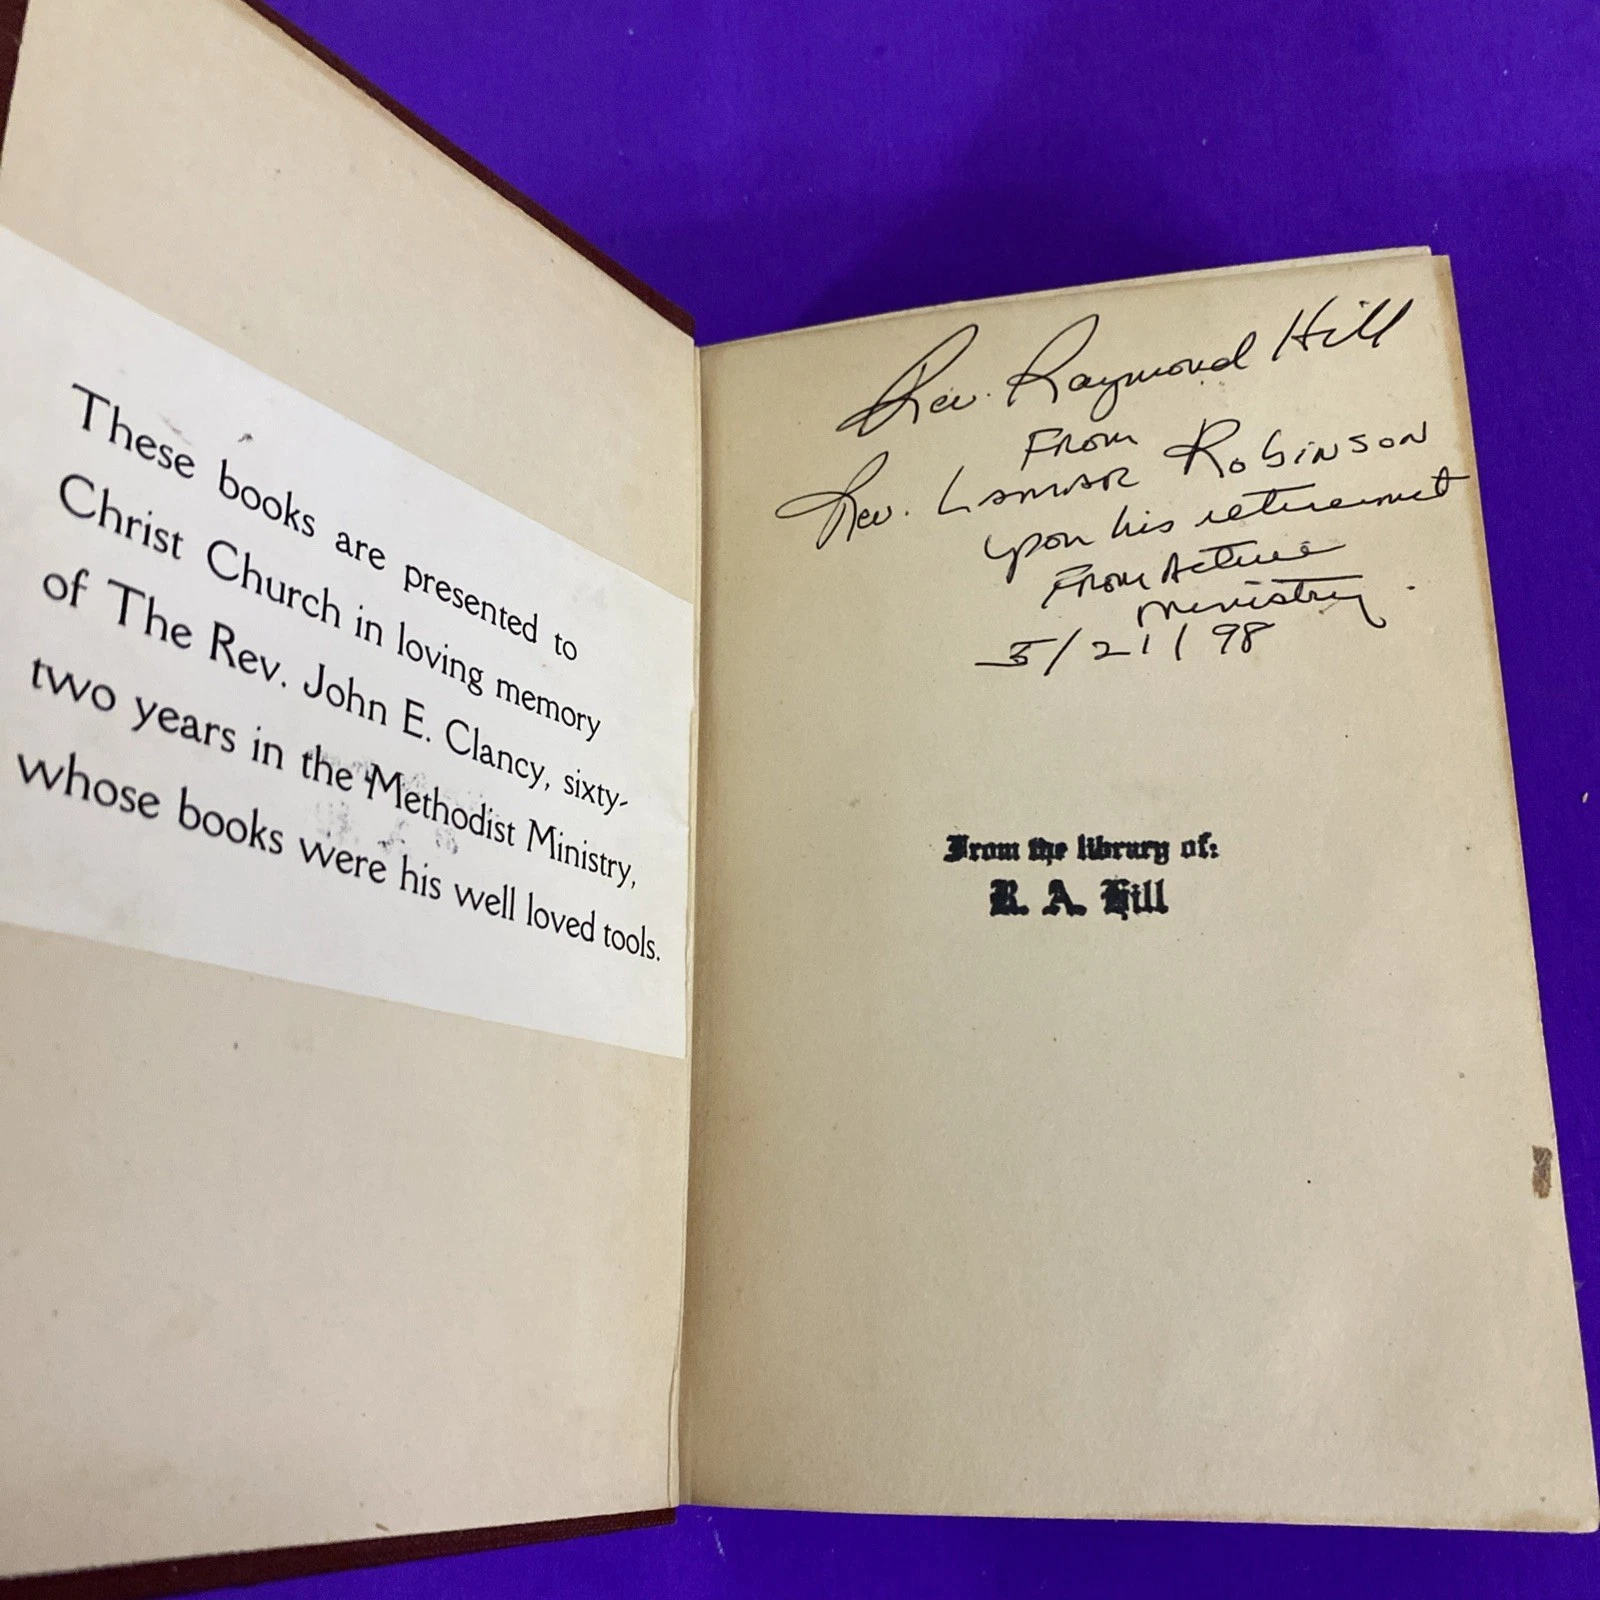 These books are presented to
Christ Church in loving memory
of The Rev. John E. Clancy, sixty-
two years in the Methodist Ministry,
whose books were his well loved tools.
Rev. Raymond Hill
From
Rev. Lamar Robinson
upon his retirement
From Active
ministry.
5/21/98
From the library of:
R. A. Hill